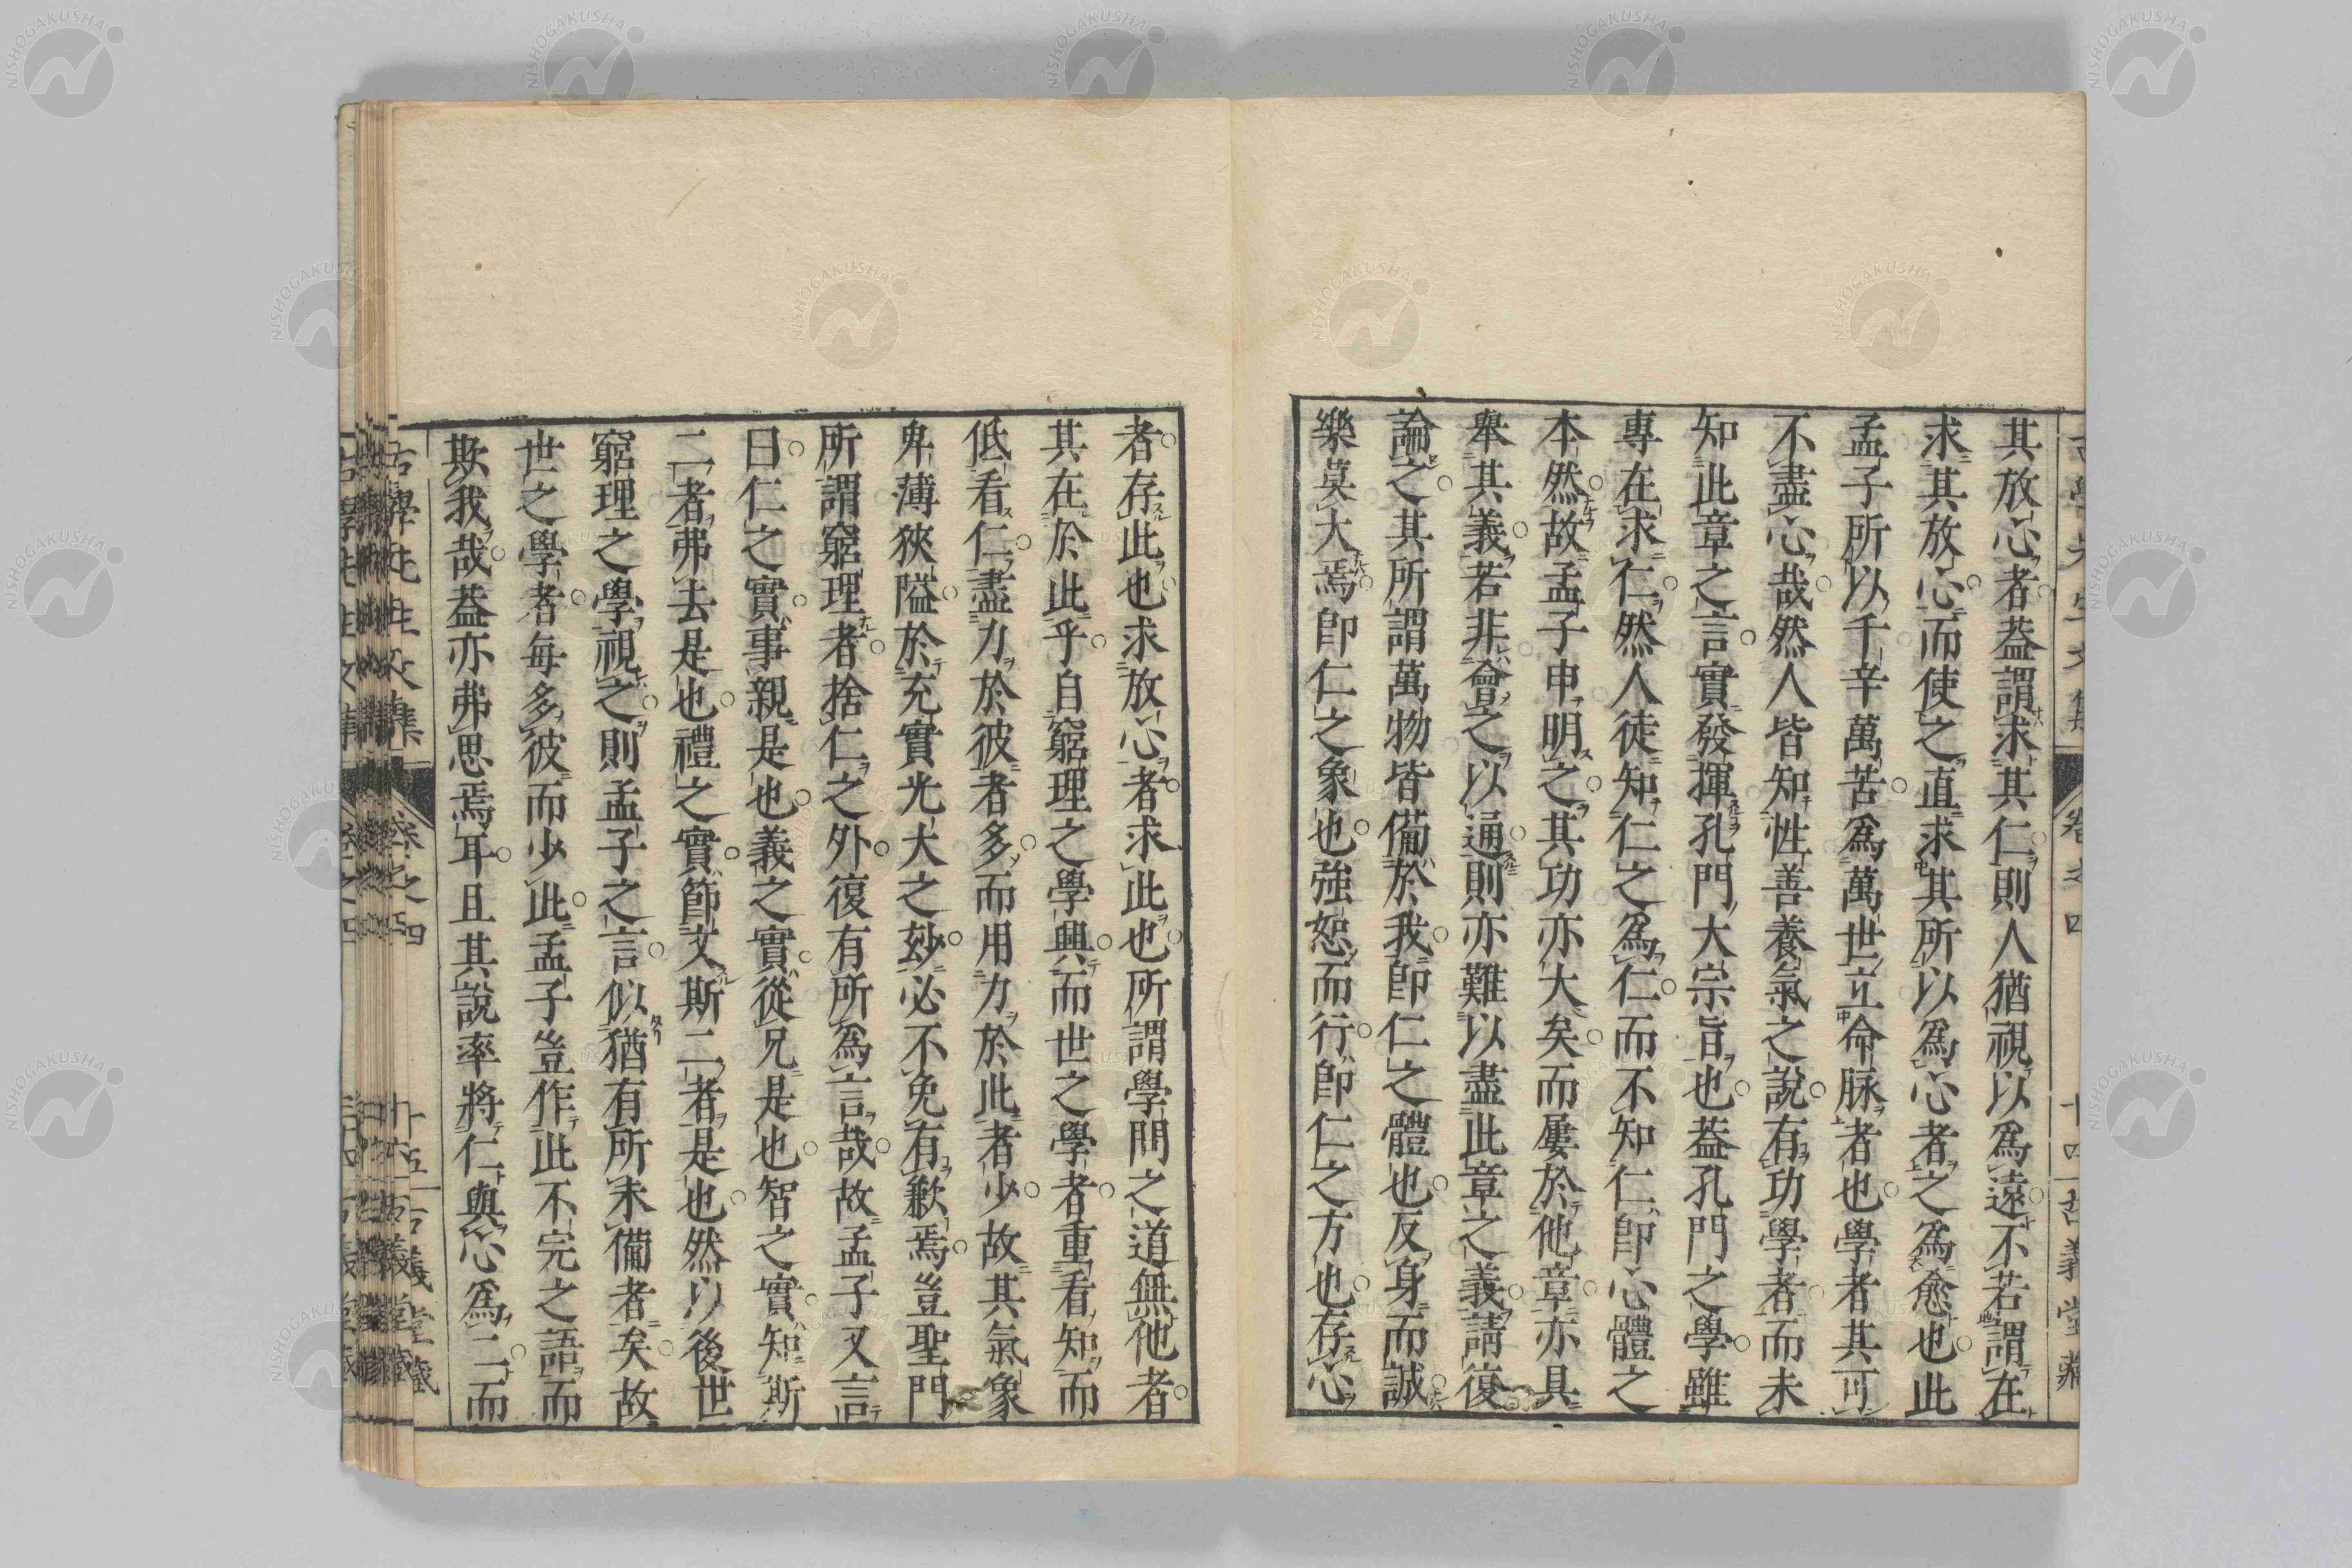 其放心者葢謂求其仁則人猶視以爲遠不若謂在
求其放心而使之直求其所以爲心者之爲愈也此
孟子所以千辛萬苦爲萬世立命脉者也學者其可
不盡心哉然人皆知性善養氣之說有功學者而未
知此章之言實發揮孔門大宗旨也葢孔門之學雖
專在求仁然人徒知仁之爲仁而不知仁卽心體之
本然故孟子申明之其功亦大矣而屢於他章亦具
舉其義若非會之以通則亦難以盡此章之義請復
論之其所謂萬物皆備於我卽仁之體也反身而誠
樂莫大焉卽仁之象也強恕而行卽仁之方也存心
者存此也求放心者求此也所謂學問之道無他者
其在於此乎自窮理之學興而世之學者重看知而
低看仁盡力於彼者多而用力於此者少故其氣象
卑薄狹隘於充實光大之玅必不免有歉焉豈聖門
所謂窮理者捨仁之外復有所爲言哉故孟子又言
曰仁之實事親是也義之實從兄是也智之實知斯
二者弗去是也禮之實節文斯二者是也然以後世
窮理之學視之則孟子之言似猶有所未備者矣故
世之學者每多彼而少此孟子豈作此不完之語而
欺我哉葢亦弗思焉耳且其說率將仁與心爲二而
古學先生文集
卷之四
十四
古義堂藏
古學先生文集
卷之四
十五
古義堂藏
NISHOGAKUSHA